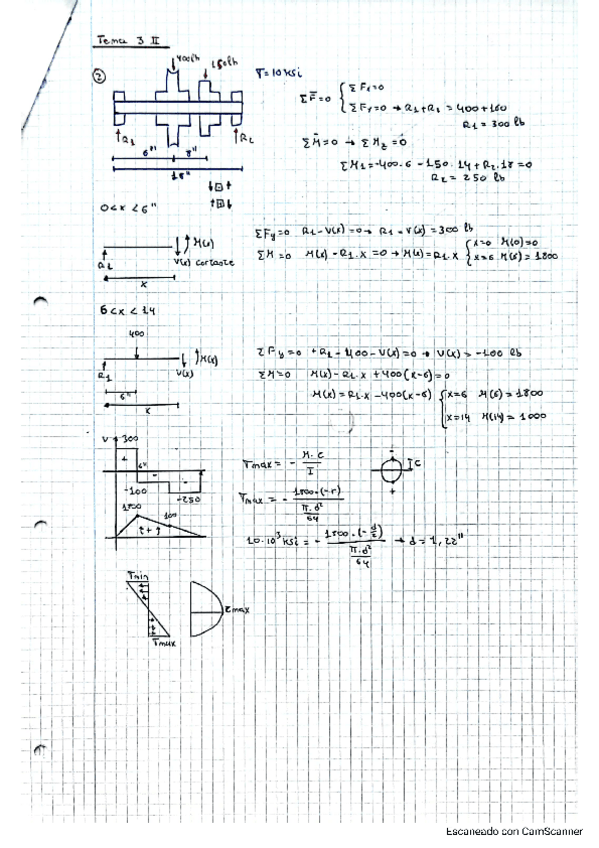 Tema 3 II
②
↓400lb
150lb
σ=10ksi
R1
R2
6"
8"
18"
ΣF̄=0 { ΣFx=0
ΣFy=0 → R1+R2 = 400+150
R1 = 300 lb
ΣM̄=0 → ΣMz=0
ΣM1=-400·6 - 150·14 + R2·18=0
R2 = 250 lb
0<x<6"
M(x)
V(x) cortante
R1
x
ΣFy=0 R1-V(x)=0 → R1=V(x)=300 lb
ΣM=0 M(x)-R1·x=0 → M(x)=R1·x { x=0 M(0)=0
x=6 M(6)=1800
6<x<14
400
M(x)
R1
V(x)
6"
x
ΣFy=0 +R1-400-V(x)=0 → V(x)=-100 lb
ΣM=0 M(x)-R1·x+400(x-6)=0
M(x)=R1·x-400(x-6) { x=6 M(6)=1800
x=14 M(14)=1000
V
300
+
6"
-
-100
-250
1800
σmax = - M·c / I
c
-
+
σmax = - 1800·(-r) / (π·d² / 64)
10·10³ksi = - 1800·(-d/2) / (π·d² / 64) → d=1,22"
σmin
σmax
τmax
Escaneado con CamScanner